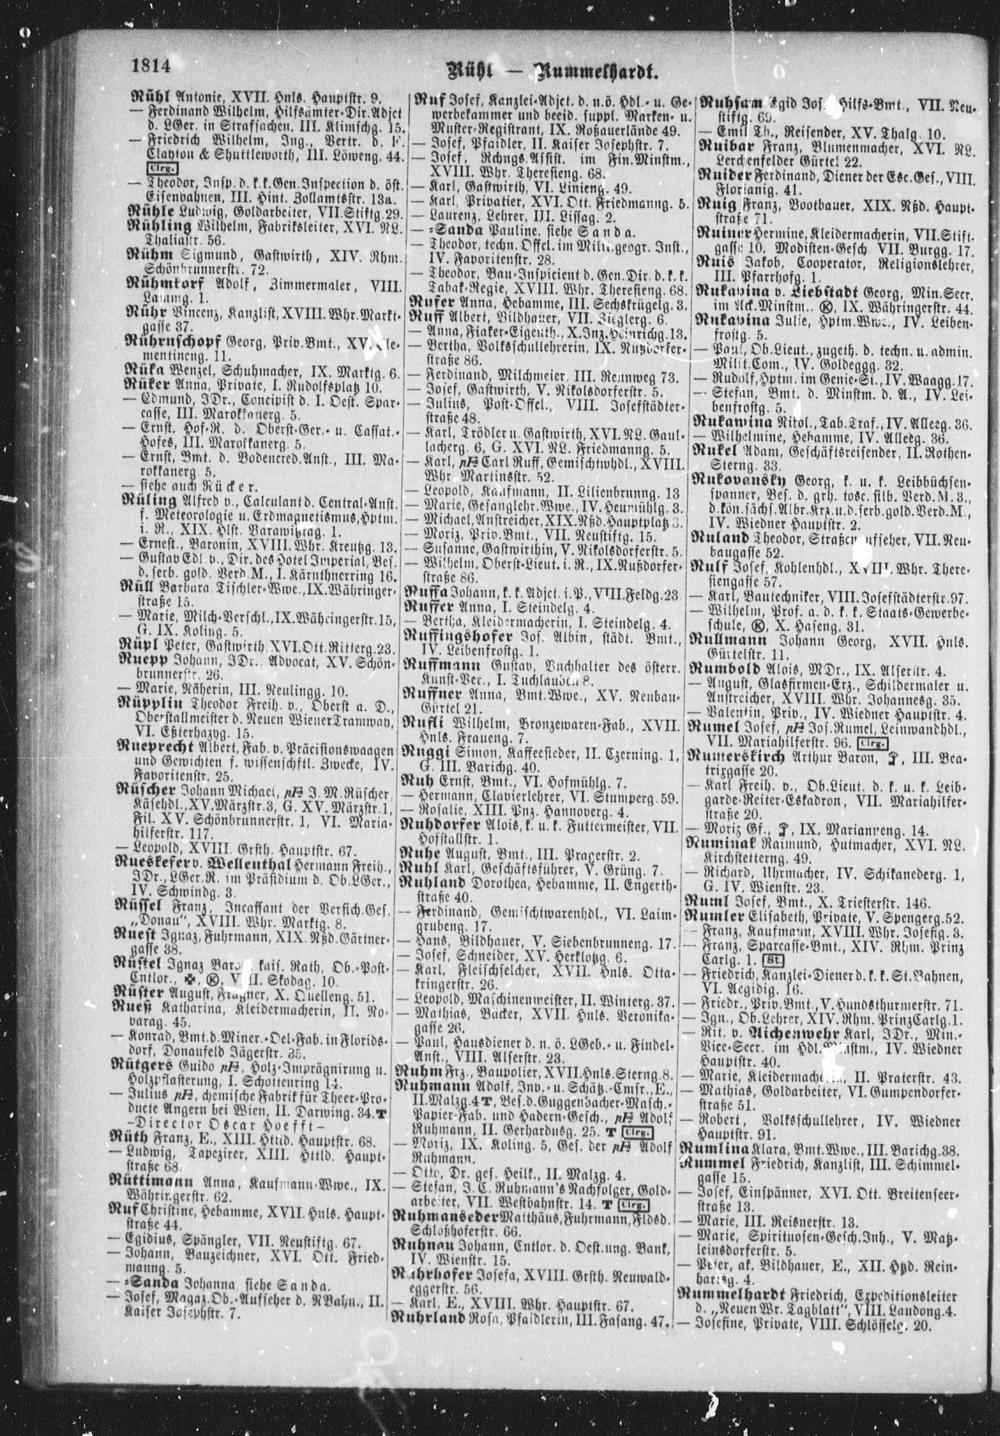 1814
Rühl — Rummelhardt.
Rühl Antonie, XVII. Hnls. Hauptstr. 9.
— Ferdinand Wilhelm, Hilfsämter-Dir.Adjct
d. LGer. in Strafsachen, III. Klimschg. 15.
— Friedrich Wilhelm, Ing., Vertr. d. F.
Clayton & Shuttleworth, III. Löweng. 44.
Clrg.
— Theodor, Insp. d. k.k. Gen. Inspection d. öst.
Eisenbahnen, III. Hint. Zollamtsstr. 13a.
Rühle Ludwig, Goldarbeiter, VII. Stiftg. 29.
Rühling Wilhelm, Fabriksleiter, XVI. NL.
Thaliastr. 56.
Rühm Sigmund, Gastwirth, XIV. Rhm.
Schönbrunnerstr. 72.
Rühmkorf Adolf, Zimmermaler, VIII.
1.
Rühr Vincenz, Kanzlist, XVIII. Whr. Markt-
gasse 37.
Rührnschopf Georg, Priv. Bmt., XV. Cle-
mentineng. 11.
Rüka Wenzel, Schuhmacher, IX. Marktg. 6.
Rüker Anna, Private, I. Rudolfsplatz 10.
— Edmund, JDr., Concipist d. I. Oest. Spar-
casse, III. Marokkanerg. 5.
— Ernst, Hof-R. d. Oberst-Ger.- u. Cassat.-
Hofes, III. Marokkanerg. 5.
— Ernst, Bmt. d. Bodencred. Anst., III. Ma-
rokkanerg. 5.
— siehe auch Rücker.
Rüling Alfred v., Calculant d. Central-Anst.
f. Meteorologie u. Erdmagnetismus, Hptm.
i. R., XIX. Hlst. Barawitzkag. 1.
— Ernest., Baronin, XVIII. Whr. Kreuzg. 13.
— Gustav Edl. v., Dir. des Hotel Imperial, Bes.
d. serb. gold. Verd. M., I. Kärnthnerring 16.
Rüll Barbara, Tischler-Wwe., IX. Währinger-
straße 15.
— Marie, Milch-Verschl., IX. Währingerstr. 15,
G. IX. Koling. 5.
Rüpl Peter, Gastwirth, XVI. Ott. Ritterg. 23.
Ruepp Johann, JDr., Advocat, XV. Schön-
brunnerstr. 26.
— Marie, Näherin, III. Neulingg. 10.
Rüpplin Theodor Freih. v., Oberst a. D.,
Oberstallmeister d. Neuen Wiener Tramway,
VI. Eßterhazyg. 15.
Rueprecht Albert, Fab. v. Präcisionswaagen
und Gewichten f. wissenschftl. Zwecke, IV.
Favoritenstr. 25.
Rüscher Johann Michael, J. M. Rüscher,
Käsehdl., XV. Märzstr. 3, G. XV. Märzstr. 1,
Fil. XV. Schönbrunnerstr. 1, VI. Maria-
hilferstr. 117.
— Leopold, XVIII. Grsth. Hauptstr. 67.
Rueskefer v. Wellenthal Hermann Freih.,
JDr., LGer.R. im Präsidium d. Ob. LGer.,
IV. Schwindg. 3.
Rüssel Franz, Incassant der Versich. Ges.
„Donau“, XVIII. Whr. Marktg. 8.
Ruest Ignaz, Fuhrmann, XIX. Nßd. Gärtner-
gasse 38.
Rüstel Ignaz kais. Rath, Ob.-Post-
Cntlor., Skodag. 10.
Rüster August, Fragner, X. Quelleng. 51.
Rueß Katharina, Kleidermacherin, II. No-
varag. 45.
— Konrad, Bmt. d. Miner.-Oel-Fab. in Florids-
dorf, Donaufeld Jägerstr. 35.
Rütgers Guido, Holz-Imprägnirung u.
Holzpflasterung, I. Schottenring 14.
— Julius, chemische Fabrik für Theer-Pro-
ducte Angern bei Wien, II. Darwing. 34. T
— Director Oscar Hoefft —
Rüth Franz, E., XIII. Httld. Hauptstr. 68.
— Ludwig, Tapezirer, XIII. Httld. Haupt-
straße 68.
Rüttimann Anna, Kaufmann-Wwe., IX.
Währingerstr. 62.
Ruf Christine, Hebamme, XVII. Hnls. Haupt-
straße 44.
— Egidius, Spängler, VII. Neustiftg. 67.
— Johann, Bauzeichner, XVI. Ott. Fried-
manng. 5.
— -Sanda Johanna, siehe Sanda.
— Josef, Magaz. Ob.-Aufseher d. NBahn., II.
Kaiser Josephstr. 7.
Ruf Josef, Kanzlei-Adjct. d. n.ö. Hdl.- u. Ge-
werbekammer und beeid. suppl. Marken- u.
Muster-Registrant, IX. Roßauerlände 49.
— Josef, Pfaidler, II. Kaiser Josephstr. 7.
— Josef, Rchngs. Assist. im Fin. Minstm.,
XVIII. Whr. Theresieng. 68.
— Karl, Gastwirth, VI. Linieng. 49.
— Karl, Privatier, XVI. Ott. Friedmanng. 5.
— Laurenz, Lehrer, III. Lissag. 2.
— -Sanda Pauline, siehe Sanda.
— Theodor, techn. Offcl. im Milit. geogr. Inst.,
IV. Favoritenstr. 28.
— Theodor, Bau-Inspicient d. Gen. Dir. d. k. k.
Tabak-Regie, XVIII. Whr. Theresieng. 68.
Rufer Anna, Hebamme, III. Sechskrügelg. 3.
Ruff Albert, Bildhauer, VII. Zieglerg. 6.
— Anna, Fiaker-Eigenth., X. Inz. Heinrichg. 13.
— Bertha, Volksschullehrerin, IX. Nußdorfer-
straße 86.
— Ferdinand, Milchmeier, III. Rennweg 73.
— Josef, Gastwirth, V. Nikolsdorferstr. 5.
— Julius, Post-Offcl., VIII. Josefstädter-
straße 48.
— Karl, Trödler u. Gastwirth, XVI. NL. Gaul-
lacherg. 6, G. XVI. NL. Friedmanng. 5.
— Karl, Carl Ruff, Gemischtwhdl., XVIII.
Whr. Martinsstr. 52.
— Leopold, Kaufmann, II. Lilienbrunng. 13
— Marie, Gesanglehr. Wwe., IV. Heumühlg. 3.
— Michael, Anstreicher, XIX. Nßd. Hauptplatz 3.
— Moriz, Priv. Bmt., VII. Neustiftg. 15.
— Susanne, Gastwirthin, V. Nikolsdorferstr. 5.
— Wilhelm, Oberst-Lieut. i. R., IX. Nußdorfer-
straße 86.
Ruffa Johann, k. k. Adjct. i. P., VIII. Feldg. 23.
Ruffer Anna, I. Steindelg. 4.
— Bertha, Kleidermacherin, I. Steindelg. 4.
Ruffingshofer Jos. Albin, städt. Bmt.,
IV. Leibenfrostg. 1.
Ruffmann Gustav, Buchhalter des österr.
Kunst-Ver., I. Tuchlauben 8.
Ruffner Anna, Bmt. Wwe., XV. Neubau-
Gürtel 21.
Rufli Wilhelm, Bronzewaren-Fab., XVII.
Hnls. Fraueng. 7.
Ruggi Simon, Kaffeesieder, II. Czerning. 1,
G. III. Barichg. 40.
Ruh Ernst, Bmt., VI. Hofmühlg. 7.
— Hermann, Clavierlehrer, VI. Stumperg. 59.
— Rosalie, XIII. Pnz. Hannoverg. 4.
Ruhdorfer Alois, k. u. k. Futtermeister, VII.
Hofstallstr. 1.
Ruhe August, Bmt., III. Pragerstr. 2.
Ruhl Karl, Geschäftsführer, V. Grüng. 7.
Ruhland Dorothea, Hebamme, II. Engerth-
straße 40.
— Ferdinand, Gemischtwarenhdl., VI. Laim-
grubeng. 17.
— Hans, Bildhauer, V. Siebenbrunneng. 17.
— Josef, Schneider, XV. Herklotzg. 6.
— Karl, Fleischselcher, XVII. Hnls. Otta-
kringerstr. 26.
— Leopold, Maschinenmeister, II. Winterg. 37.
— Mathias, Bäcker, XVII. Hnls. Veronika-
gasse 26.
— Paul, Hausdiener d. n. ö. LGeb.- u. Findel-
Anst., VIII. Alserstr. 23.
Ruhm Frz., Baupolier, XVII. Hnls. Sterng. 8.
Ruhmann Adolf, Inv.- u. Schätz.-Cmsr., E.,
II. Malzg. 4 T, Bes. d. Guggenbacher-Masch.-
Papier-Fab. und Hadern-Gesch., Adolf
Ruhmann, II. Gerhardusg. 25. T Clrg.
— Moriz, IX. Koling. 5, Ges. der Adolf
Ruhmann.
— Otto, Dr. ges. Heilk., II. Malzg. 4.
— Stefan, J. C. Ruhmann's Nachfolger, Gold-
arbeiter, VII. Westbahnstr. 14. T Clrg.
Ruhmanseder Matthäus, Fuhrmann, Fldsd.
Schloßhoferstr. 66.
Ruhnau Johann, Cntlor. d. Oest. ung. Bank,
IV. Wienstr. 15.
Ruhrhofer Josefa, XVIII. Grsth. Neuwald-
eggerstr. 56.
— Karl, E., XVIII. Whr. Hauptstr. 67.
Ruhrland Rosa, Pfaidlerin, III. Fasang. 47.
Ruhsam Egid Jos., Hilfs-Bmt., VII. Neu-
stiftg. 69.
— Emil Th., Reisender, XV. Thalg. 10.
Ruibar Franz, Blumenmacher, XVI. NL.
Lerchenfelder Gürtel 22.
Ruider Ferdinand, Diener der Esc. Ges., VIII.
Florianig. 41.
Ruig Franz, Bootbauer, XIX. Nßd. Haupt-
straße 71.
Ruiner Hermine, Kleidermacherin, VII. Stift-
gasse 10, Modisten-Gesch. VII. Burgg. 17.
Ruis Jakob, Cooperator, Religionslehrer,
III. Pfarrhofg. 1.
Rukavina v. Liebstadt Georg, Min. Secr.
im Ack. Minstm., Ⓚ, IX. Währingerstr. 44.
Rukavina Julie, Hptm. Wwe., IV. Leiben-
frostg. 5.
— Paul, Ob. Lieut., zugeth. d. techn. u. admin.
Milit. Com., IV. Goldeggg. 32.
— Rudolf, Hptm. im Genie-St., IV. Waagg. 17.
— Stefan, Bmt. d. Minstm. d. A., IV. Lei-
benfrostg. 5.
Rukawina Nikol., Tab. Traf., IV. Alleeg. 36.
— Wilhelmine, Hebamme, IV. Alleeg. 36.
Rukel Adam, Geschäftsreisender, II. Rothen-
Sterng. 33.
Rukovansky Georg, k. u. k. Leibbüchsen-
spanner, Bes. d. grh. tosc. silb. Verd. M. 3.,
d. kön. sächs. Albr. Krz. u. d. serb. gold. Verd. M.,
IV. Wiedner Hauptstr. 2.
Ruland Theodor, Straßenaufseher, VII. Neu-
baugasse 52.
Rulf Josef, Kohlenhdl., XVIII. Whr. There-
siengasse 57.
— Karl, Bautechniker, VIII. Josefstädterstr. 97.
— Wilhelm, Prof. a. d. k. k. Staats-Gewerbe-
schule, Ⓚ, X. Haseng. 31.
Rullmann Johann Georg, XVII. Hnls.
Gürtelstr. 11.
Rumbold Alois, MDr., IX. Alserstr. 4.
— August, Glasfirmen-Erz., Schildermaler u.
Anstreicher, XVIII. Whr. Johannesg. 35.
— Valentin, Priv., IV. Wiedner Hauptstr. 4.
Rumel Josef, Jos. Rumel, Leinwandhdl.,
VII. Mariahilferstr. 96. Clrg.
Rumerskirch Arthur Baron, III. Bea-
trixgasse 20.
— Karl Freih. v., Ob. Lieut. d. k. u. k. Leib-
garde-Reiter-Eskadron, VII. Mariahilfer-
straße 20.
— Moriz Gf., IX. Marianneng. 14.
Ruminak Raimund, Hutmacher, XVI. NL.
Kirchstetterng. 49.
— Richard, Uhrmacher, IV. Schikanederg. 1,
G. IV. Wienstr. 23.
Ruml Josef, Bmt., X. Triesterstr. 146.
Rumler Elisabeth, Private, V. Spengerg. 52.
— Franz, Kaufmann, XVIII. Whr. Josefig. 3.
— Franz, Sparcasse-Bmt., XIV. Rhm. Prinz
Carlg. 1. St.
— Friedrich, Kanzlei-Diener d. k. k. St. Bahnen,
VI. Aegidig. 16.
— Friedr., Priv. Bmt., V. Hundsthurmerstr. 71.
— Ign., Ob. Lehrer, XIV. Rhm. Prinz Carlg. 1.
— Rit. v. Aichenwehr Karl, JDr., Min.-
Vice-Secr. im Hdl. Minstm., IV. Wiedner
Hauptstr. 40.
— Marie, Kleidermacherin, II. Praterstr. 43.
— Mathias, Goldarbeiter, VI. Gumpendorfer-
straße 51.
— Robert, Volksschullehrer, IV. Wiedner
Hauptstr. 91.
Rumlina Klara, Bmt. Wwe., III. Barichg. 38.
Rummel Friedrich, Kanzlist, III. Schimmel-
gasse 15.
— Josef, Einspänner, XVI. Ott. Breitenseer-
straße 13.
— Marie, III. Reisnerstr. 13.
— Marie, Spirituosen-Gesch. Inh., V. Matz-
leinsdorferstr. 5.
— Peter, ak. Bildhauer, E., XII. Hßd. Rein-
4.
Rummelhardt Friedrich, Expeditionsleiter
d. „Neuen Wr. Tagblatt“, VIII. Laudong. 4.
— Josefine, Private, VIII. Schlösselg. 20.